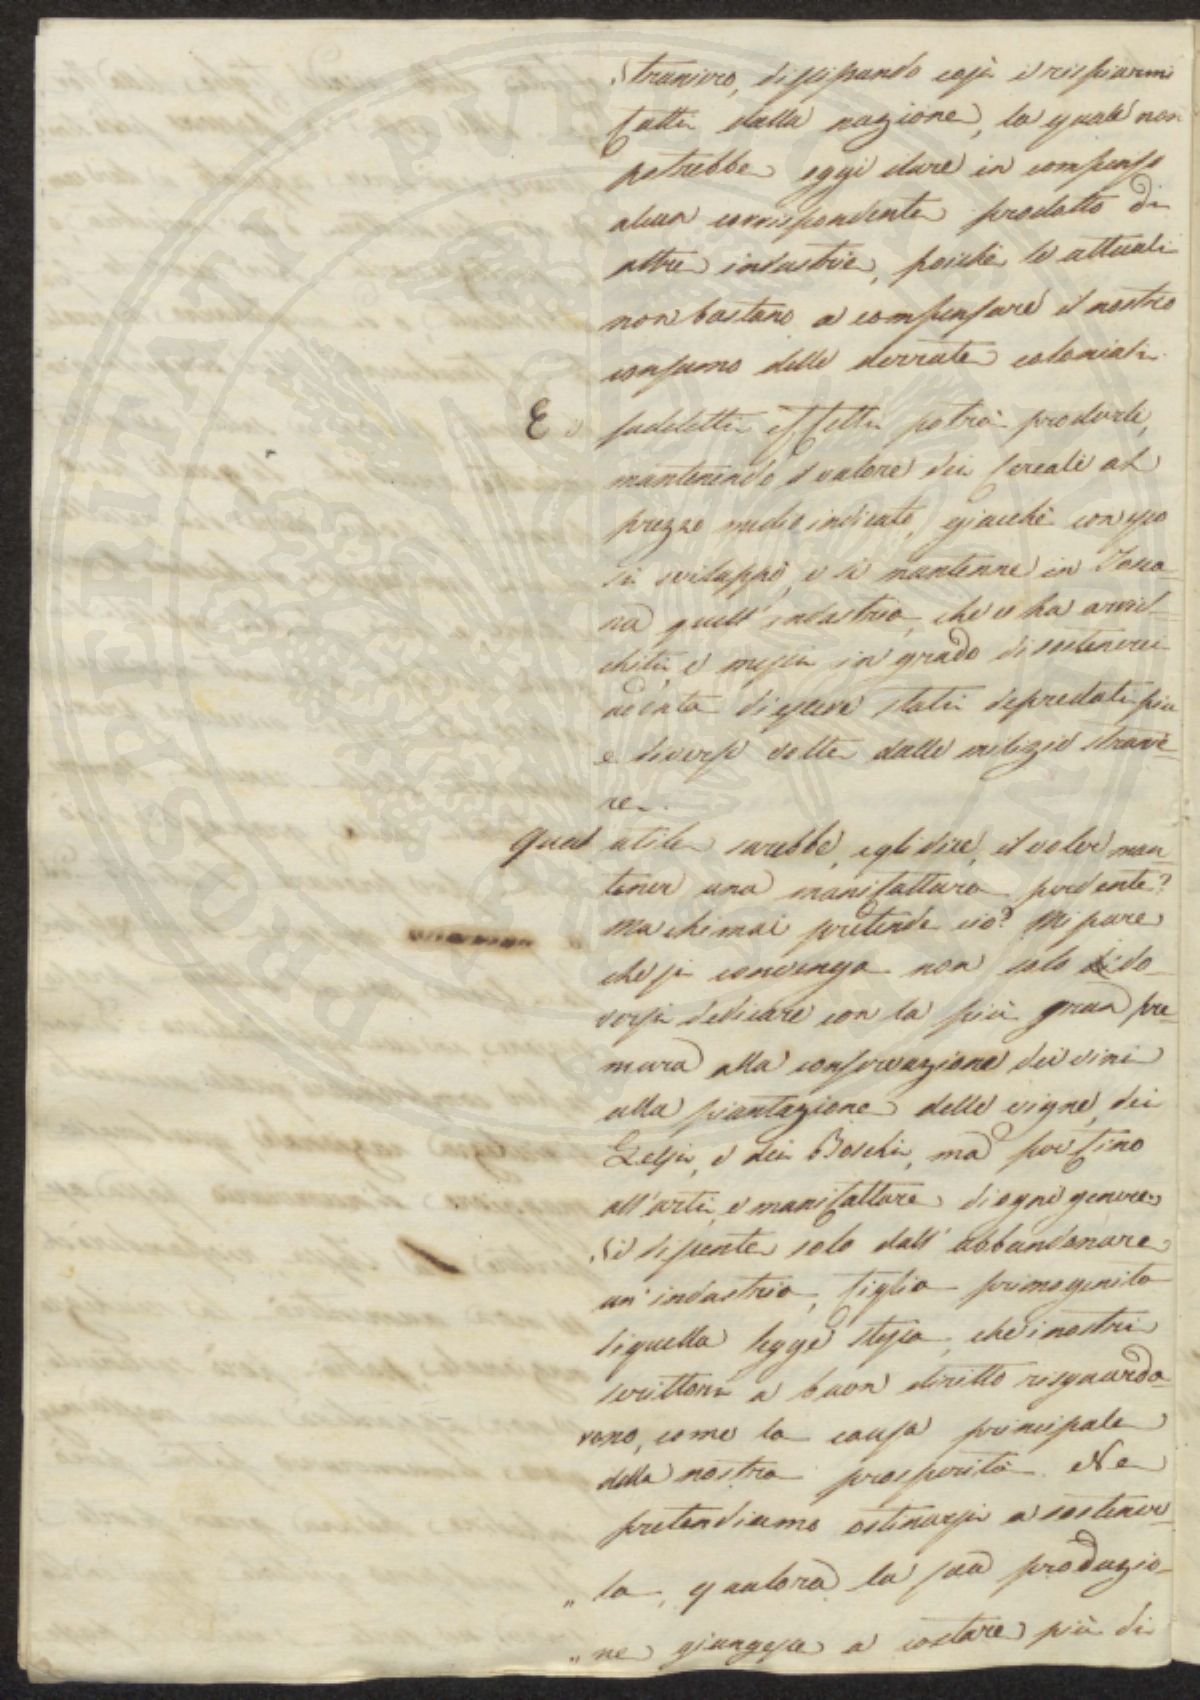 straniero, dissipando così i risparmi
fatti dalla nazione, la quale non
potrebbe oggi dare in compenso
alcun corrispondente prodotto di
altre industrie, poiché le attuali
non bastano a compensare il nostro
consumo delle derrate coloniali.
E i suddetti effetti potrà produrle,
mantenendo il valore dei Cereali al
prezzo medio indicato, giacchè con esso
si sviluppò, e si mantenne in Tosca-
na quell'industria, che ci ha arric-
chiti, e messi in grado di sostenerci
ad onta di essere stati depredati più
e diverse volte dalle milizie stranie-
re.
Qual utile sarebbe, egli dice, il voler man-
tener una manifattura perdente?
Ma chi mai pretende ciò? Mi pare
che si convenga non solo di do-
versi dedicare con la più gran pre-
mura alla conservazione dei vini
alla piantazione delle vigne, dei
Gelsi, e dei Boschi, ma per fino
all'arti, e manifatture di ogni genere.
Si dipente solo dall'abbandonare
un'industria, figlia primogenita
di quella legge stessa, che i nostri
scrittori a buon diritto risguarda-
rono, come la causa principale
della nostra prosperità. Ne
pretendiamo ostinarsi a sostener-
„ la, qualora la sua produzio-
„ ne giungesse a costare più di
PROSPERITATI PVBLICAE